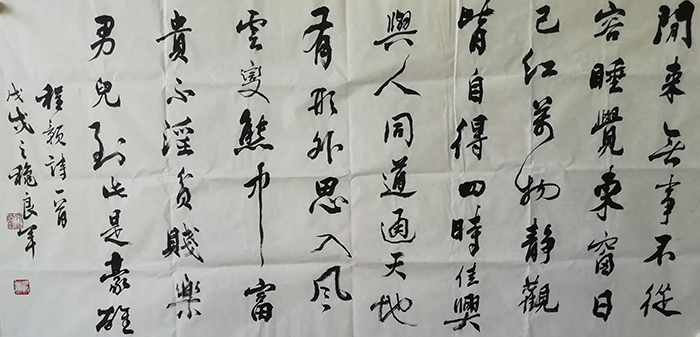 閒來無事不從
容睡覺東窗日
已紅萬物靜觀
皆自得四時佳興
與人同道通天地
有形外思入風
雲變態中富
貴不淫貧賤樂
男兒到此是豪雄
程顥詩一首
戊戌之穐良